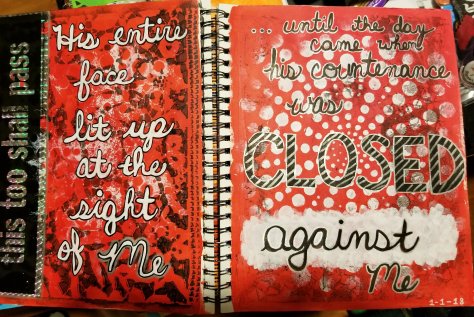 this too shall pass
His entire
face
lit up
at the
sight
of Me
... until the day
came when
his countenance
was
CLOSED
against
Me
1-1-18